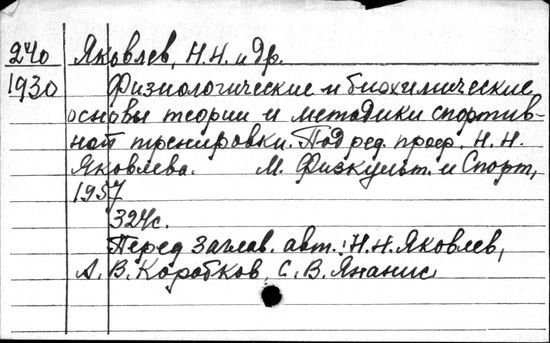 240 Яковлев, Н.Н. и др.
1930 Физиологические и биохимические
основы теории и методики спортив-
ной тренировки. Под ред. проф. Н.Н.
Яковлева. М. Физкульт. и Спорт,
1957
324с.
Перед заглав. авт.: Н.Н. Яковлев,
А.В. Коробков, С.В. Янанис